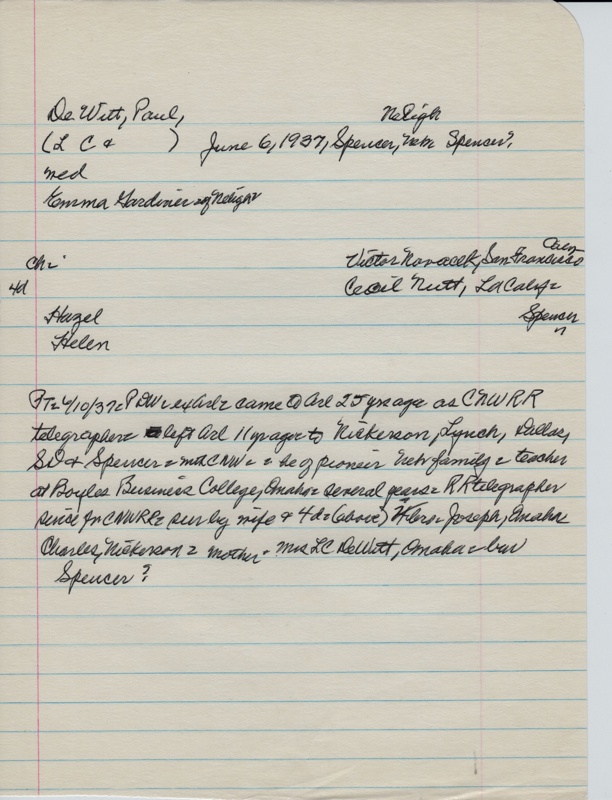 DeWitt, Paul, Neligh
(L C & ) June 6, 1937, Spencer, Neb Spencer?
med
Emma Gardiner of Neligh
Calif
Ch: Victor Novacek, San Francisco
4d Cecil Nutt, LA Calif=
Hazel Spencer
Helen
PT= 6/10/37= PDW= ex Arl= came to Arl 25 yrs ago as CNWRR
telegrapher= left Arl 11 yrs ago to Nickerson, Lynch, Dallas,
SD & Spencer= with CNW= = he of pioneer Neb family= teacher
at Boyles Business College, Omaha= several years= RR telegrapher
since for CNWRR= sur by wife & 4d= (above) bro= Joseph, Omaha
Charles, Nickerson= mother= Mrs LC DeWitt, Omaha= bur
Spencer?